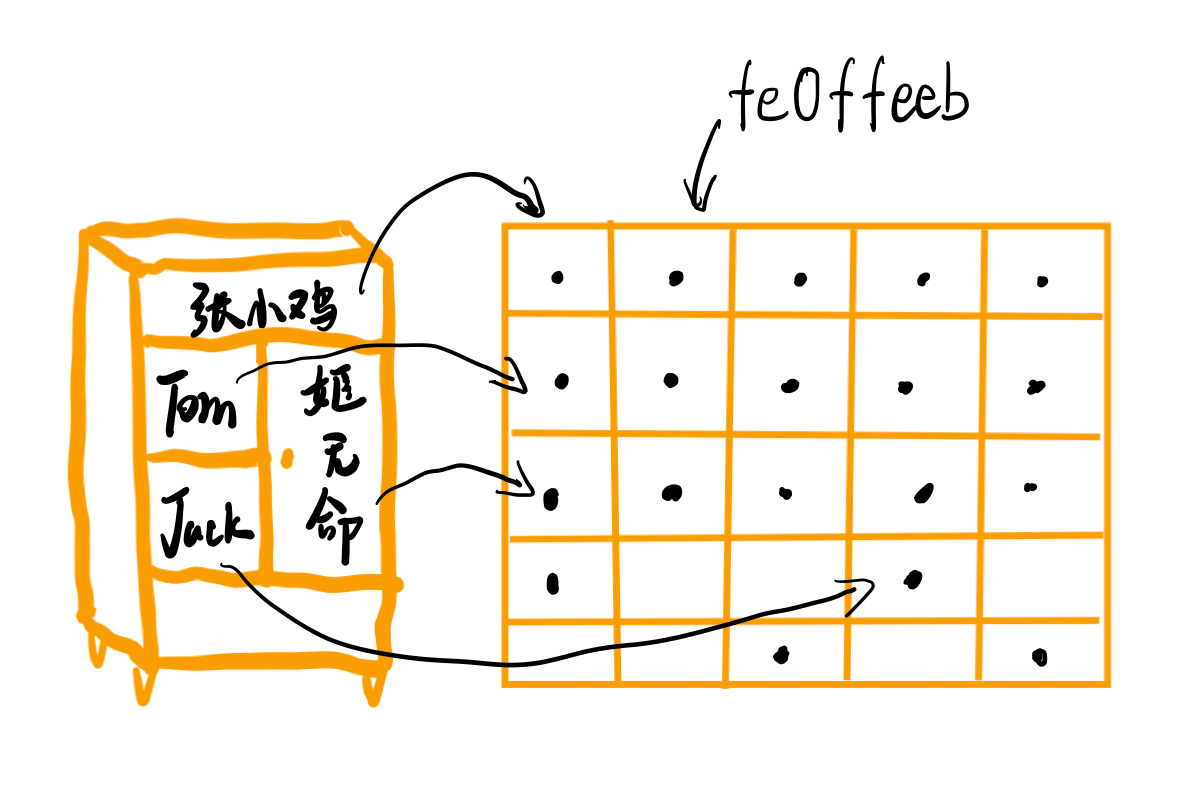 fe0ffeeb
张小鸡
Tom
姬
无
命
Jack